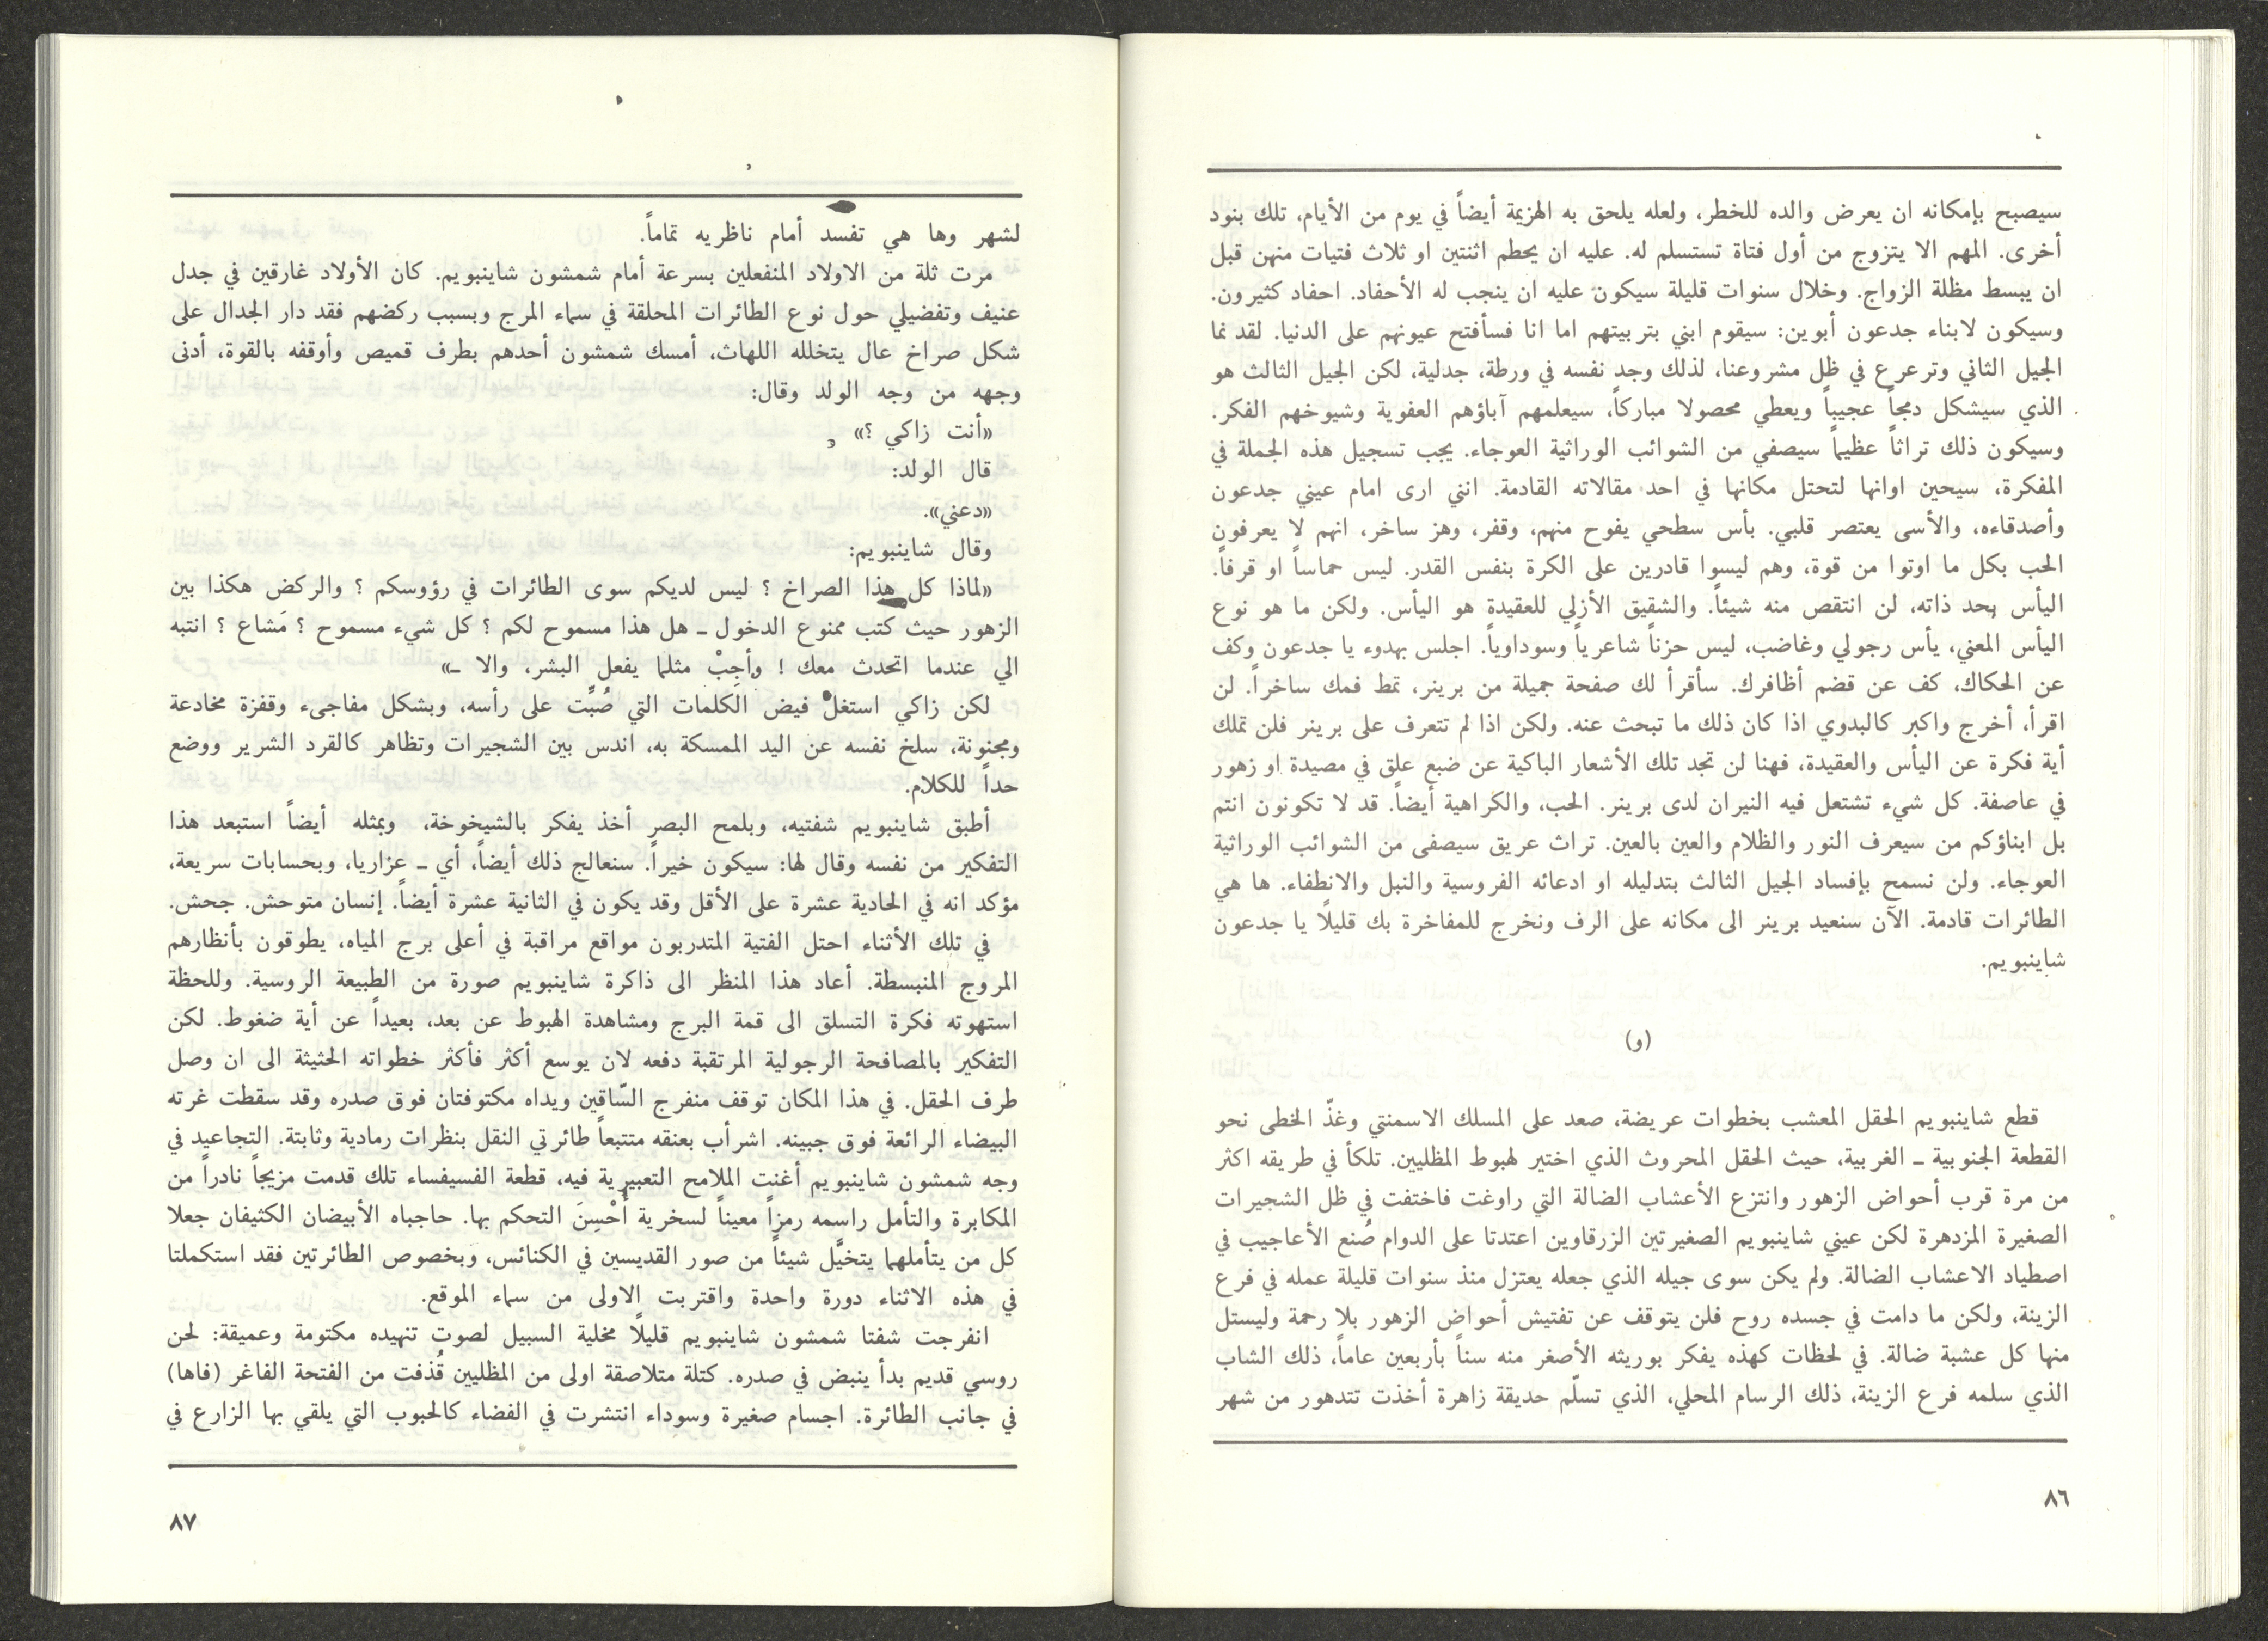 سيصبح بإمكانه ان يعرض والده للخطر، ولعله يلحق به الهزيمة أيضاً في يوم من الأيام، تلك بنود
أخرى. المهم الا يتزوج من أول فتاة تستسلم له. عليه ان يحطم اثنتين او ثلاث فتيات منهن قبل
ان يبسط مظلة الزواج. وخلال سنوات قليلة سيكون عليه ان ينجب له الأحفاد. احفاد كثيرون.
وسيكون لابناء جدعون أبوين: سيقوم ابني بتربيتهم اما انا فسأفتح عيونهم على الدنيا. لقد نما
الجيل الثاني وترعرع في ظل مشروعنا، لذلك وجد نفسه في ورطة، جدلية، لكن الجيل الثالث هو
الذي سيشكل دمجاً عجيباً ويعطي محصولا مباركاً، سيعلمهم آباؤهم العفوية وشيوخهم الفكر.
وسيكون ذلك تراثاً عظيماً سيصفي من الشوائب الوراثية العوجاء. يجب تسجيل هذه الجملة في
المفكرة، سيحين اوانها لتحتل مكانها في احد مقالاته القادمة. انني ارى امام عيني جدعون
وأصدقاءه، والأسى يعتصر قلبي. بأس سطحي يفوح منهم، وقفر، وهز ساخر، انهم لا يعرفون
الحب بكل ما اوتوا من قوة، وهم ليسوا قادرين على الكرة بنفس القدر. ليس حماساً او قرفاً.
اليأس بحد ذاته، لن انتقص منه شيئاً. والشقيق الأزلي للعقيدة هو اليأس. ولكن ما هو نوع
اليأس المعني، يأس رجولي وغاضب، ليس حزناً شاعرياً وسوداوياً. اجلس بهدوء يا جدعون وكف
عن الحكاك، كف عن قضم أظافرك. سأقرأ لك صفحة جميلة من برينر، تمط فمك ساخراً. لن
اقرأ، أخرج واكبر كالبدوي اذا كان ذلك ما تبحث عنه. ولكن اذا لم تتعرف على برينر فلن تملك
أية فكرة عن اليأس والعقيدة، فهنا لن تجد تلك الأشعار الباكية عن ضبع علق في مصيدة او زهور
في عاصفة. كل شيء تشتعل فيه النيران لدى برينر. الحب، والكراهية أيضاً. قد لا تكونون انتم
بل ابناؤكم من سيعرف النور والظلام والعين بالعين. تراث عريق سيصفى من الشوائب الوراثية
العوجاء. ولن نسمح بإفساد الجيل الثالث بتدليله او ادعائه الفروسية والنبل والانطفاء. ها هي
الطائرات قادمة. الآن سنعيد برينر الى مكانه على الرف ونخرج للمفاخرة بك قليلًا يا جدعون
شاينبويم.
(و)
قطع شاينبويم الحقل المعشب بخطوات عريضة، صعد على المسلك الاسمنتي وغذّ الخطى نحو
القطعة الجنوبية ـ الغربية، حيث الحقل المحروث الذي اختير لهبوط المظليين. تلكأ في طريقه اكثر
من مرة قرب أحواض الزهور وانتزع الأعشاب الضالة التي راوغت فاختفت في ظل الشجيرات
الصغيرة المزدهرة لكن عيني شاينبويم الصغيرتين الزرقاوين اعتدتا على الدوام صُنع الأعاجيب في
اصطياد الاعشاب الضالة. ولم يكن سوى جيله الذي جعله يعتزل منذ سنوات قليلة عمله في فرع
الزينة، ولكن ما دامت في جسده روح فلن يتوقف عن تفتيش أحواض الزهور بلا رحمة وليستل
منها كل عشبة ضالة. في لحظات كهذه يفكر بوريثه الأصغر منه سناً بأربعين عاماً، ذلك الشاب
الذي سلمه فرع الزينة، ذلك الرسام المحلي، الذي تسلّم حديقة زاهرة أخذت تتدهور من شهر
٨٦
لشهر وها هي تفسد أمام ناظريه تماماً.
مرت ثلة من الاولاد المنفعلين بسرعة أمام شمشون شاينبويم. كان الأولاد غارقين في جدل
عنيف وتفضيلي حول نوع الطائرات المحلقة في سماء المرج وبسبب ركضهم فقد دار الجدال على
شكل صراخ عال يتخلله اللهاث، أمسك شمشون أحدهم بطرف قميص وأوقفه بالقوة، أدنى
وجهه من وجه الولد وقال:
«أنت زاكي ؟»
قال الولد:
«دعني».
وقال شاينبويم:
«لماذا كل هذا الصراخ ؟ ليس لديكم سوى الطائرات في رؤوسكم ؟ والركض هكذا بين
الزهور حيث كتب ممنوع الدخول ـ هل هذا مسموح لكم ؟ كل شيء مسموح ؟ مَشاع ؟ انتبه
الي عندما اتحدث معك ! وأجِبْ مثلما يفعل البشر، والا ـ»
لكن زاكي استغل فيض الكلمات التي صُبِّت على رأسه، وبشكل مفاجىء وقفزة مخادعة
ومجنونة، سلخ نفسه عن اليد الممسكة به، اندس بين الشجيرات وتظاهر كالقرد الشرير ووضع
حداً للكلام.
أطبق شاينبويم شفتيه، وبلمح البصر أخذ يفكر بالشيخوخة، وبمثله أيضاً استبعد هذا
التفكير من نفسه وقال لها: سيكون خيراً. سنعالج ذلك أيضاً، أي ـ عزاريا، وبحسابات سريعة،
مؤكد انه في الحادية عشرة على الأقل وقد يكون في الثانية عشرة أيضاً. إنسان متوحش. جحش.
في تلك الأثناء احتل الفتية المتدربون مواقع مراقبة في أعلى برج المياه، يطوقون بأنظارهم
المروج المنبسطة. أعاد هذا المنظر الى ذاكرة شاينبويم صورة من الطبيعة الروسية. وللحظة
استهوته فكرة التسلق الى قمة البرج ومشاهدة الهبوط عن بعد، بعيداً عن أية ضغوط. لكن
التفكير بالمصافحة الرجولية المرتقبة دفعه لان يوسع أكثر فأكثر خطواته الحثيثة الى ان وصل
طرف الحقل. في هذا المكان توقف منفرج السّاقين ويداه مكتوفتان فوق صدره وقد سقطت غرته
البيضاء الرائعة فوق جبينه. اشرأب بعنقه متتبعاً طائرتي النقل بنظرات رمادية وثابتة. التجاعيد في
وجه شمشون شاينبويم أغنت الملامح التعبيرية فيه، قطعة الفسيفساء تلك قدمت مزيجاً نادراً من
المكابرة والتأمل راسمه رمزاً معيناً لسخرية أُحْسِنَ التحكم بها. حاجباه الأبيضان الكثيفان جعلا
كل من يتأملهما يتخيَّل شيئاً من صور القديسين في الكنائس، وبخصوص الطائرتين فقد استكملتا
في هذه الاثناء دورة واحدة واقتربت الاولى من سماء الموقع.
انفرجت شفتا شمشون شاينبويم قليلًا مخلية السبيل لصوت تنهيده مكتومة وعميقة: لحن
روسي قديم بدأ ينبض في صدره. كتلة متلاصقة اولى من المظليين قُذفت من الفتحة الفاغر (فاها)
في جانب الطائرة. اجسام صغيرة وسوداء انتشرت في الفضاء كالحبوب التي يلقي بها الزارع في
٨٧